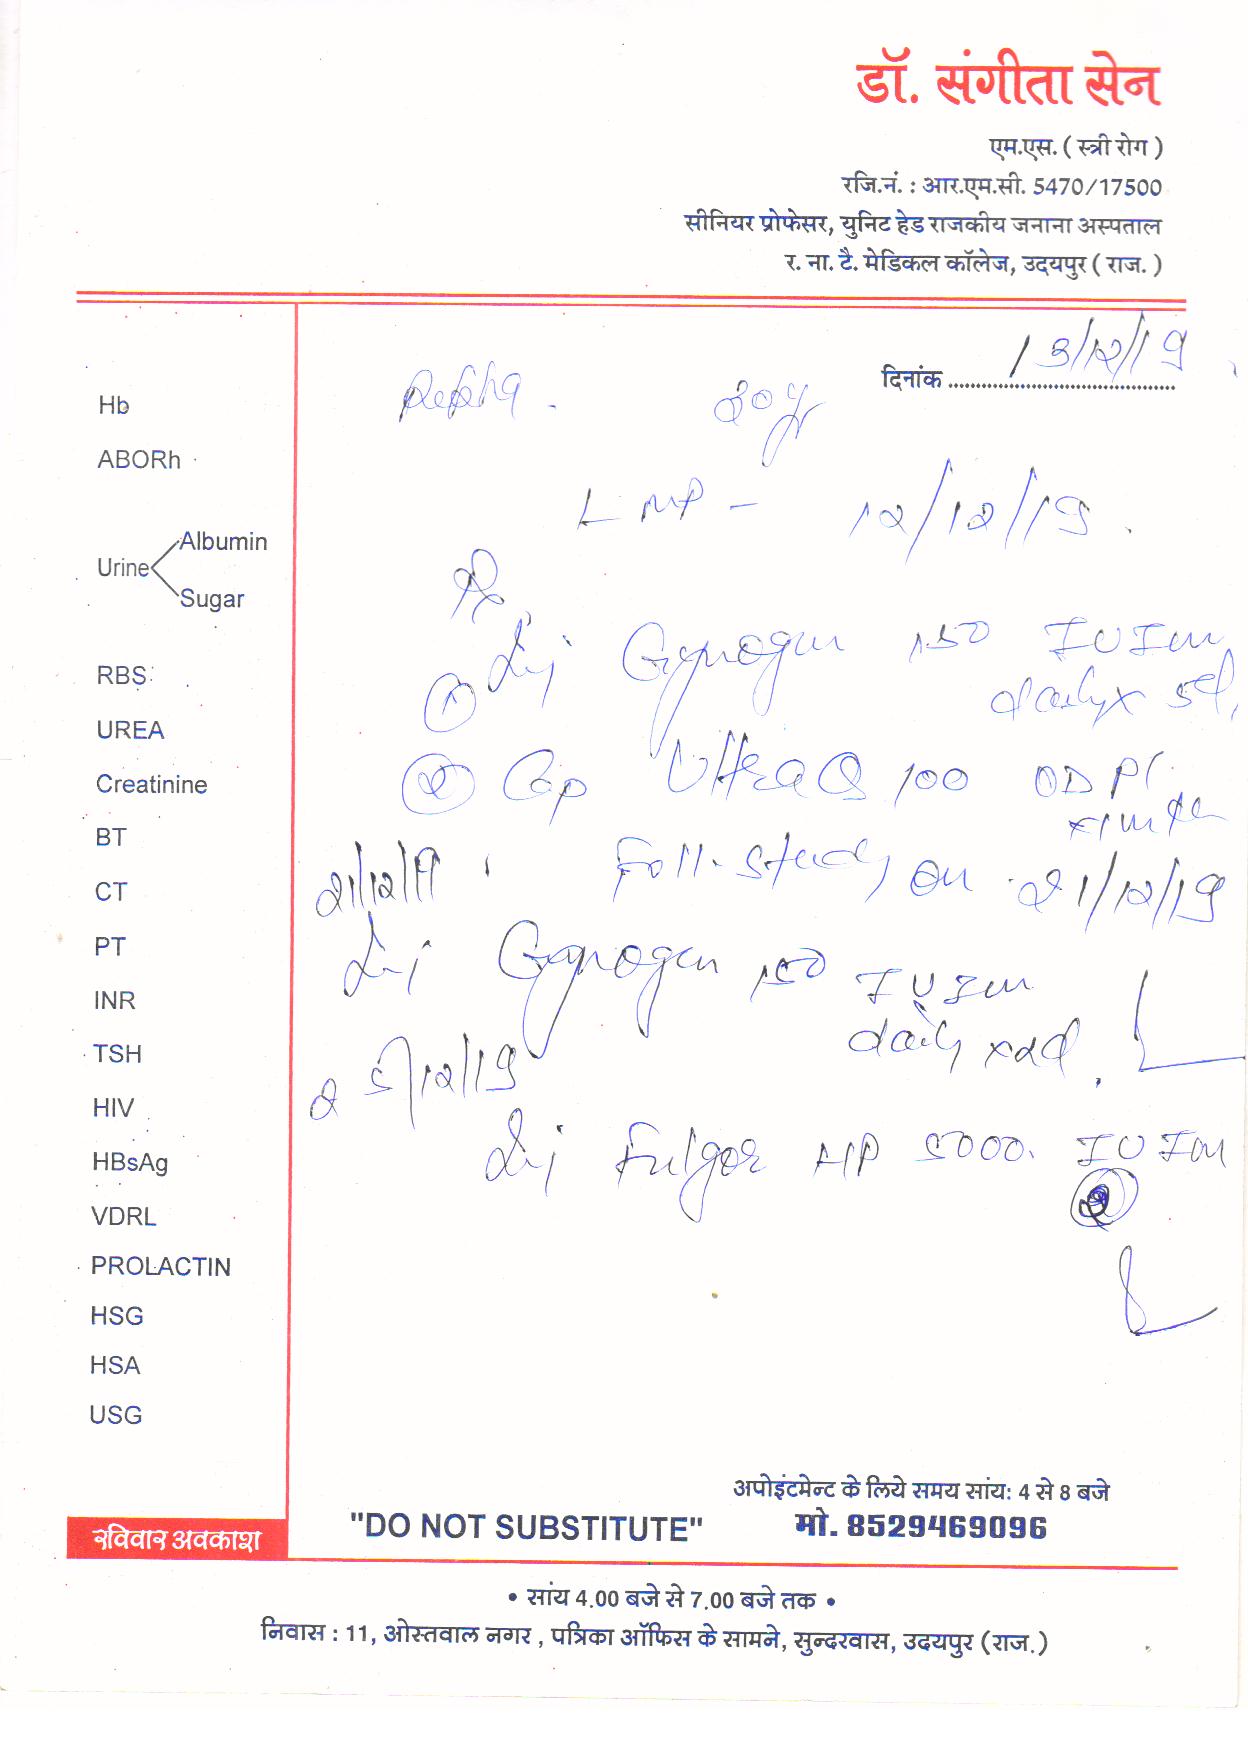 डॉ. संगीता सेन
एम.एस. ( स्त्री रोग )
रजि.नं. : आर.एम.सी. 5470/17500
सीनियर प्रोफेसर, युनिट हेड राजकीय जनाना अस्पताल
र. ना. टै. मेडिकल कॉलेज, उदयपुर ( राज. )
दिनांक 13/12/19
Hb
Rekha. 30 yr
ABORh
LMP - 12/12/19.
Urine
Albumin
Sugar
Rx
① Inj Gynogen 150 IU Im
daily x 5d,
RBS
UREA
② Cap Ultra Q 100 OD
Creatinine
BT
21/12/19 Foll. study on 21/12/19
CT
PT
Inj Gynogen 150 IU Im
daily x 2d.
INR
TSH
25/12/19
HIV
HBsAg
Inj Fulgor HP 5000. IU Im
VDRL
PROLACTIN
HSG
HSA
USG
अपोइंटमेन्ट के लिये समय सांय: 4 से 8 बजे
रविवार अवकाश "DO NOT SUBSTITUTE" मो. 8529469096
• सांय 4.00 बजे से 7.00 बजे तक •
निवास : 11, ओस्तवाल नगर , पत्रिका ऑफिस के सामने, सुन्दरवास, उदयपुर (राज.)